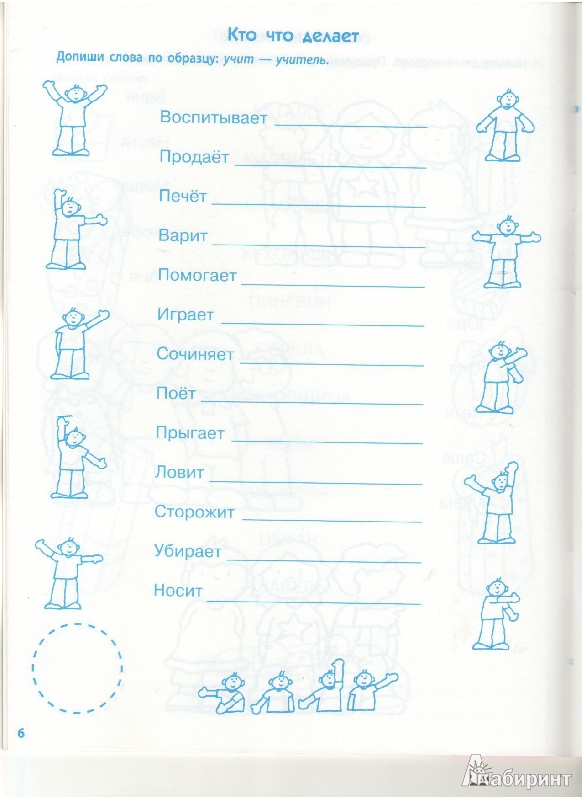 Кто что делает
Допиши слова по образцу: учит — учитель.
Воспитывает
Продаёт
Печёт
Варит
Помогает
Играет
Сочиняет
Поёт
Прыгает
Ловит
Сторожит
Убирает
Носит
6
Лабиринт